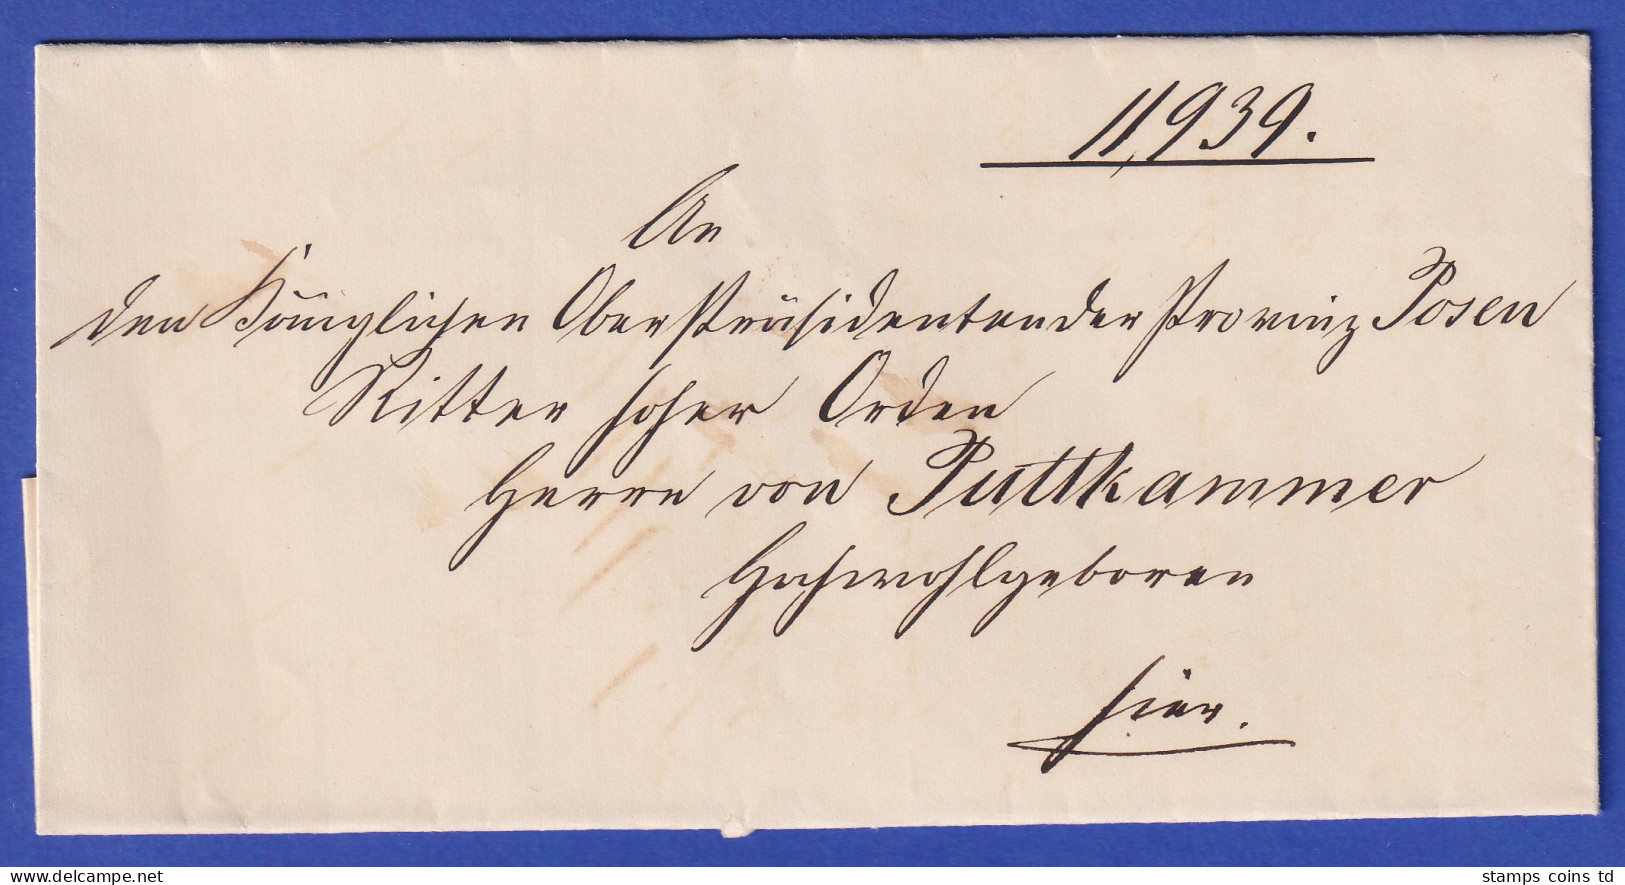 11,939.
An
den Königlichen Oberpräsidenten der Provinz Posen
Ritter hoher Orden
Herrn von Puttkammer
Hochwohlgeboren
hier.
delcampe.net
stamps coins td